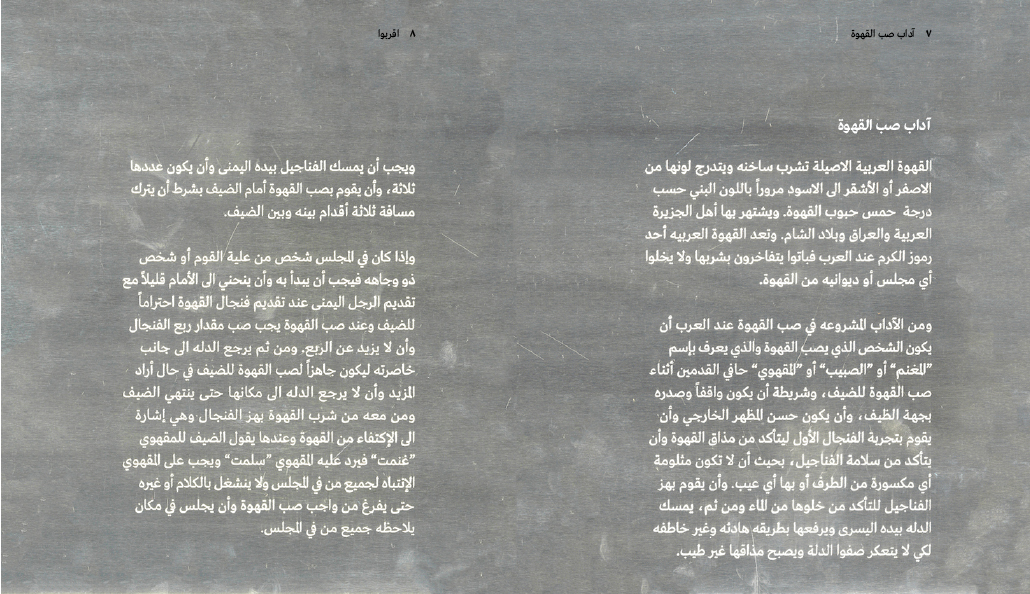 ٧ آداب صب القهوة
آداب صب القهوة
القهوة العربية الاصيلة تشرب ساخنه ويتدرج لونها من
الاصفر أو الأشقر الى الاسود مروراً باللون البني حسب
درجة حمس حبوب القهوة. ويشتهر بها أهل الجزيرة
العربية والعراق وبلاد الشام. وتعد القهوة العربيه أحد
رموز الكرم عند العرب فباتوا يتفاخرون بشربها ولا يخلوا
أي مجلس أو ديوانيه من القهوة.
ومن الآداب المشروعه في صب القهوة عند العرب أن
يكون الشخص الذي يصب القهوة والذي يعرف بإسم
”المغنم“ أو ”الصبيب“ أو ”المقهوي“ حافي القدمين أثناء
صب القهوة للضيف، وشريطة أن يكون واقفاً وصدره
بجهة الظيف، وأن يكون حسن المظهر الخارجي وأن
يقوم بتجربة الفنجال الأول ليتأكد من مذاق القهوة وأن
يتأكد من سلامة الفناجيل، بحيث أن لا تكون مثلومة
أي مكسورة من الطرف أو بها أي عيب. وأن يقوم بهز
الفناجيل للتأكد من خلوها من الماء ومن ثم، يمسك
الدله بيده اليسرى ويرفعها بطريقه هادئه وغير خاطفه
لكي لا يتعكر صفوا الدلة ويصبح مذاقها غير طيب.
٨ اقربوا
ويجب أن يمسك الفناجيل بيده اليمنى وأن يكون عددها
ثلاثة، وأن يقوم بصب القهوة أمام الضيف بشرط أن يترك
مسافة ثلاثة أقدام بينه وبين الضيف.
وإذا كان في المجلس شخص من علية القوم أو شخص
ذو وجاهه فيجب أن يبدأ به وأن ينحني الى الأمام قليلاً مع
تقديم الرجل اليمنى عند تقديم فنجال القهوة احتراماً
للضيف وعند صب القهوة يجب صب مقدار ربع الفنجال
وأن لا يزيد عن الربع. ومن ثم يرجع الدله الى جانب
خاصرته ليكون جاهزاً لصب القهوة للضيف في حال أراد
المزيد وأن لا يرجع الدله الى مكانها حتى ينتهي الضيف
ومن معه من شرب القهوة بهز الفنجال وهي إشارة
الى الإكتفاء من القهوة وعندها يقول الضيف للمقهوي
”غنمت“ فيرد عليه المقهوي ”سلمت“ ويجب على المقهوي
الإنتباه لجميع من في المجلس ولا ينشغل بالكلام أو غيره
حتى يفرغ من واجب صب القهوة وأن يجلس في مكان
يلاحظه جميع من في المجلس.